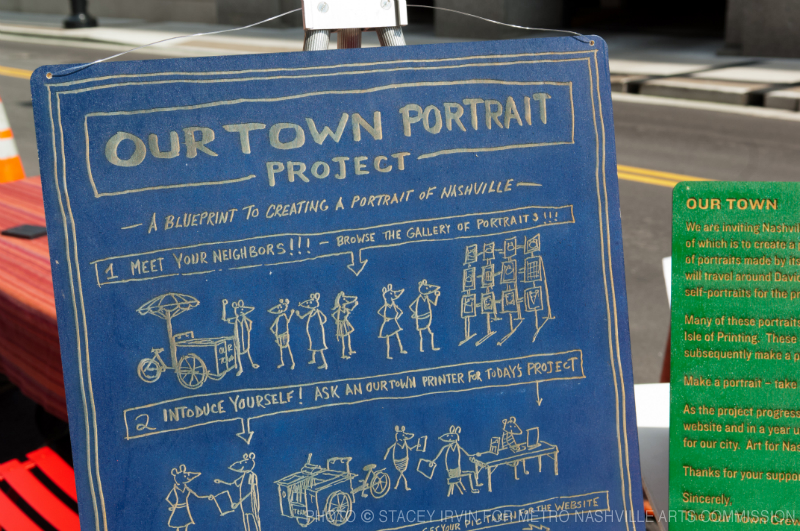 OUR TOWN PORTRAIT
PROJECT
— A BLUEPRINT TO CREATING A PORTRAIT OF NASHVILLE —
1 MEET YOUR NEIGHBORS!!! – BROWSE THE GALLERY OF PORTRAITS!!!
2 INTODUCE YOURSELF! ASK AN OURTOWN PRINTER FOR TODAY'S PROJECT
YOUR PIC TAKEN FOR THE WEBSITE
OUR TOWN
We are inviting
of which is to create a
of portraits made by its
will travel around
self-portraits for the
Many of these portraits
Isle of Printing. These
subsequently make a
Make a portrait – take
As the project
website and in a year
for our city. Art for
Thanks for your
Sincerely,
The Our Town
PHOTO © STACEY IRVIN FOR METRO NASHVILLE ARTS COMMISSION